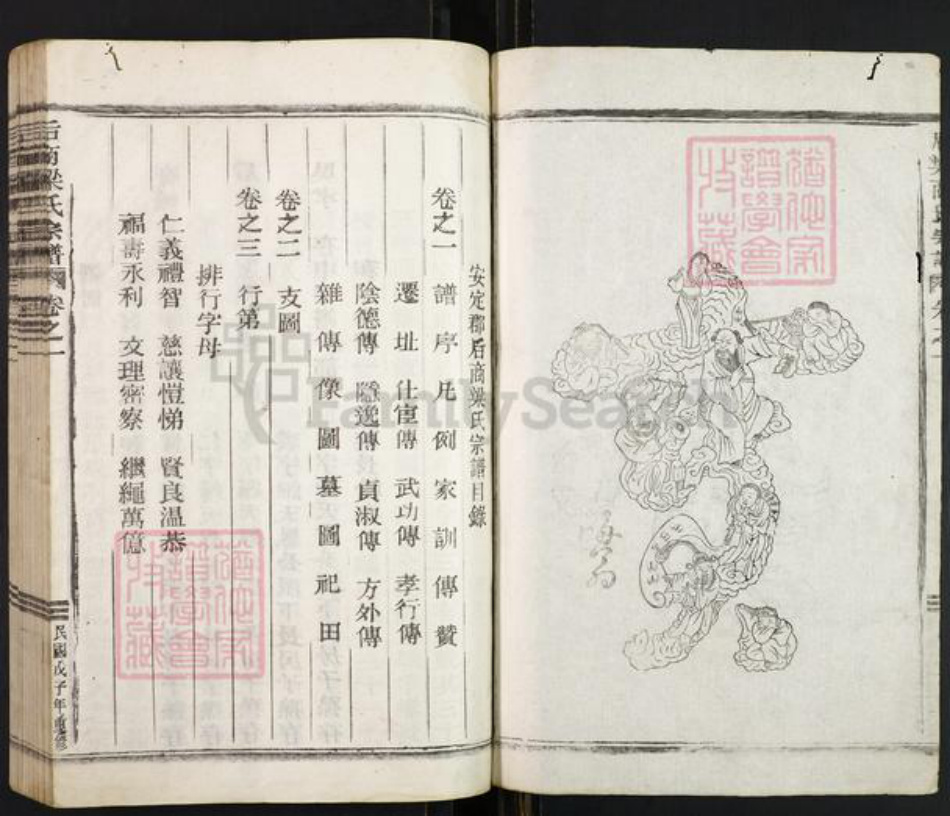 安定郡后商梁氏宗譜目錄
卷之一 譜序 凡例 家訓 傳贊
遷址 仕宦傳 武功傳 孝行傳
陰德傳 隱逸傳 貞淑傳 方外傳
雜傳 像圖 墓圖 祀田
卷之二 支圖
卷之三 行第
排行字母
仁義禮智 慈讓愷悌 賢良温恭
福壽永利 文理密察 繼繩萬億
后商梁氏宗譜 卷之一
民國戊子年重修
譜學會
收藏
譜學會
收藏
FamilySearch